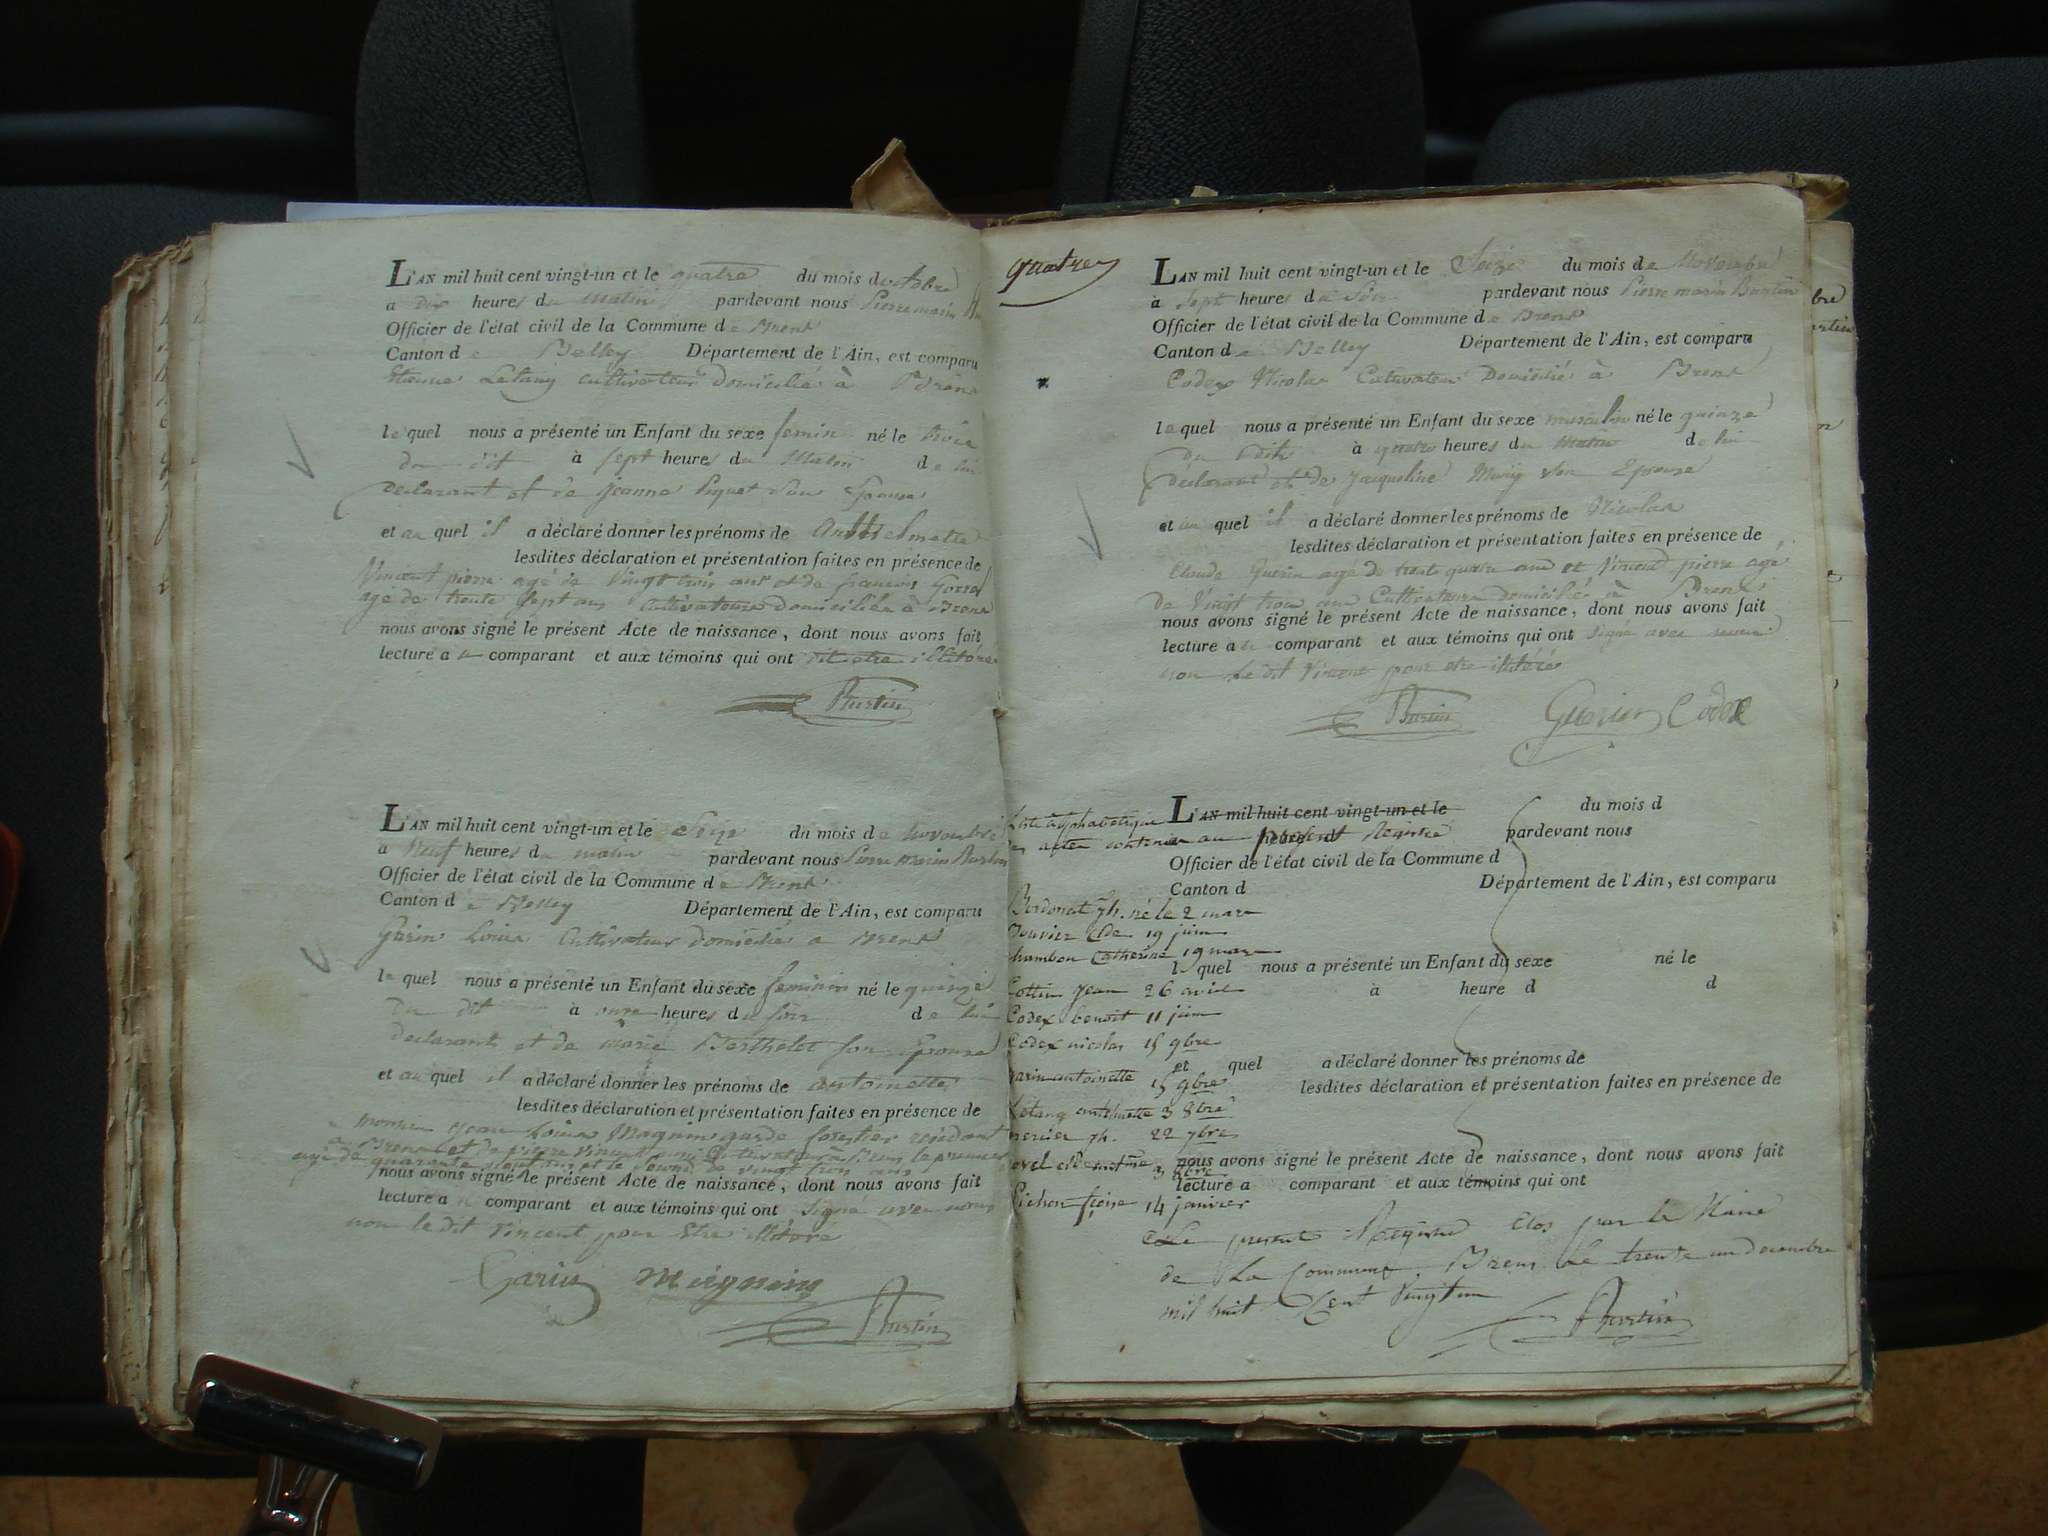 L'AN mil huit cent vingt-un et le quatre du mois doctobre
a Dix heures du Matin pardevant nous Pierre marin
Officier de l'état civil de la Commune de Brens
Canton de Belley Département de l'Ain, est comparu
Etienne Letang cultivateur domicilié à Brens
lequel nous a présenté un Enfant du sexe feminin né le trois
du dit à sept heures du Matin de lui
declarant et de Jeanne Piquet son Epouse
et auquel il a déclaré donner les prénoms de
lesdites déclaration et présentation faites en présence de
Vincent pierre agé de vingt trois ans et de françois
agé de trente sept ans Cultivateurs domiciliés à Brens
nous avons signé le présent Acte de naissance, dont nous avons fait
lecture au comparant et aux témoins qui ont dit etre illitérés
Burtin
L'AN mil huit cent vingt-un et le Seize du mois de Novembre
a Neuf heures du matin pardevant nous Pierre marin Burtin
Officier de l'état civil de la Commune de Brens
Canton de Belley Département de l'Ain, est comparu
Garin Louis Cultivateur domicilié a Brens
lequel nous a présenté un Enfant du sexe feminin né le quinze
du dit à onze heures du soir de lui
declarant et de marie Berthelet son Epouse
et auquel il a déclaré donner les prénoms de antoinette
lesdites déclaration et présentation faites en présence de
monsieur Jean Louis Magnin garde forestier residant
à Brens et de pierre Vincent Cultivateur le premier
agé de quarante sept ans et le second de vingt trois ans
nous avons signé le présent Acte de naissance, dont nous avons fait
lecture au comparant et aux témoins qui ont signé avec nous
non le dit Vincent pour Etre illitéré
Garin Magnin
Burtin
quatre
L'AN mil huit cent vingt-un et le Seize du mois de Novembre
à sept heures du Soir pardevant nous Pierre marin Burtin
Officier de l'état civil de la Commune de Brens
Canton de Belley Département de l'Ain, est comparu
Codex Nicolas Cultivateur Domicilié à Brens
lequel nous a présenté un Enfant du sexe masculin né le quinze
du dit à quatre heures du Matin de lui
déclarant et de Jacqueline son Epouse
et au quel il a déclaré donner les prénoms de Nicolas
lesdites déclaration et présentation faites en présence de
Claude Guerin agé de trente quatre ans et Vincent pierre agé
de Vingt trois ans Cultivateurs domiciliés à Brens
nous avons signé le présent Acte de naissance, dont nous avons fait
lecture au comparant et aux témoins qui ont signé avec nous
non le dit Vincent pour etre illitéré
Burtin Guerin Codex
L'AN mil huit cent vingt-un et le du mois d
Liste alphabetique
des actes contenus au present Registre pardevant nous
Officier de l'état civil de la Commune d
Canton d Département de l'Ain, est comparu
ph. né le 2 mars
Bouvier Cde 19 juin
Chambon Catherine 19 mars
l quel nous a présenté un Enfant du sexe né le
Cottin Jean 26 avril
à heure d d
Codex benoit 11 juin
Codex nicolas 15 9bre
et quel a déclaré donner les prénoms de
Garin antoinette 15 9bre
lesdites déclaration et présentation faites en présence de
Létang 3 8bre
mercier ph. 22 7bre
nous avons signé le présent Acte de naissance, dont nous avons fait
lecture a comparant et aux témoins qui ont
Pichon 14 janvier
Le present Registre Clos par le Maire
de La Commune Brens le trente un decembre
mil huit Cent Vingt un
Burtin